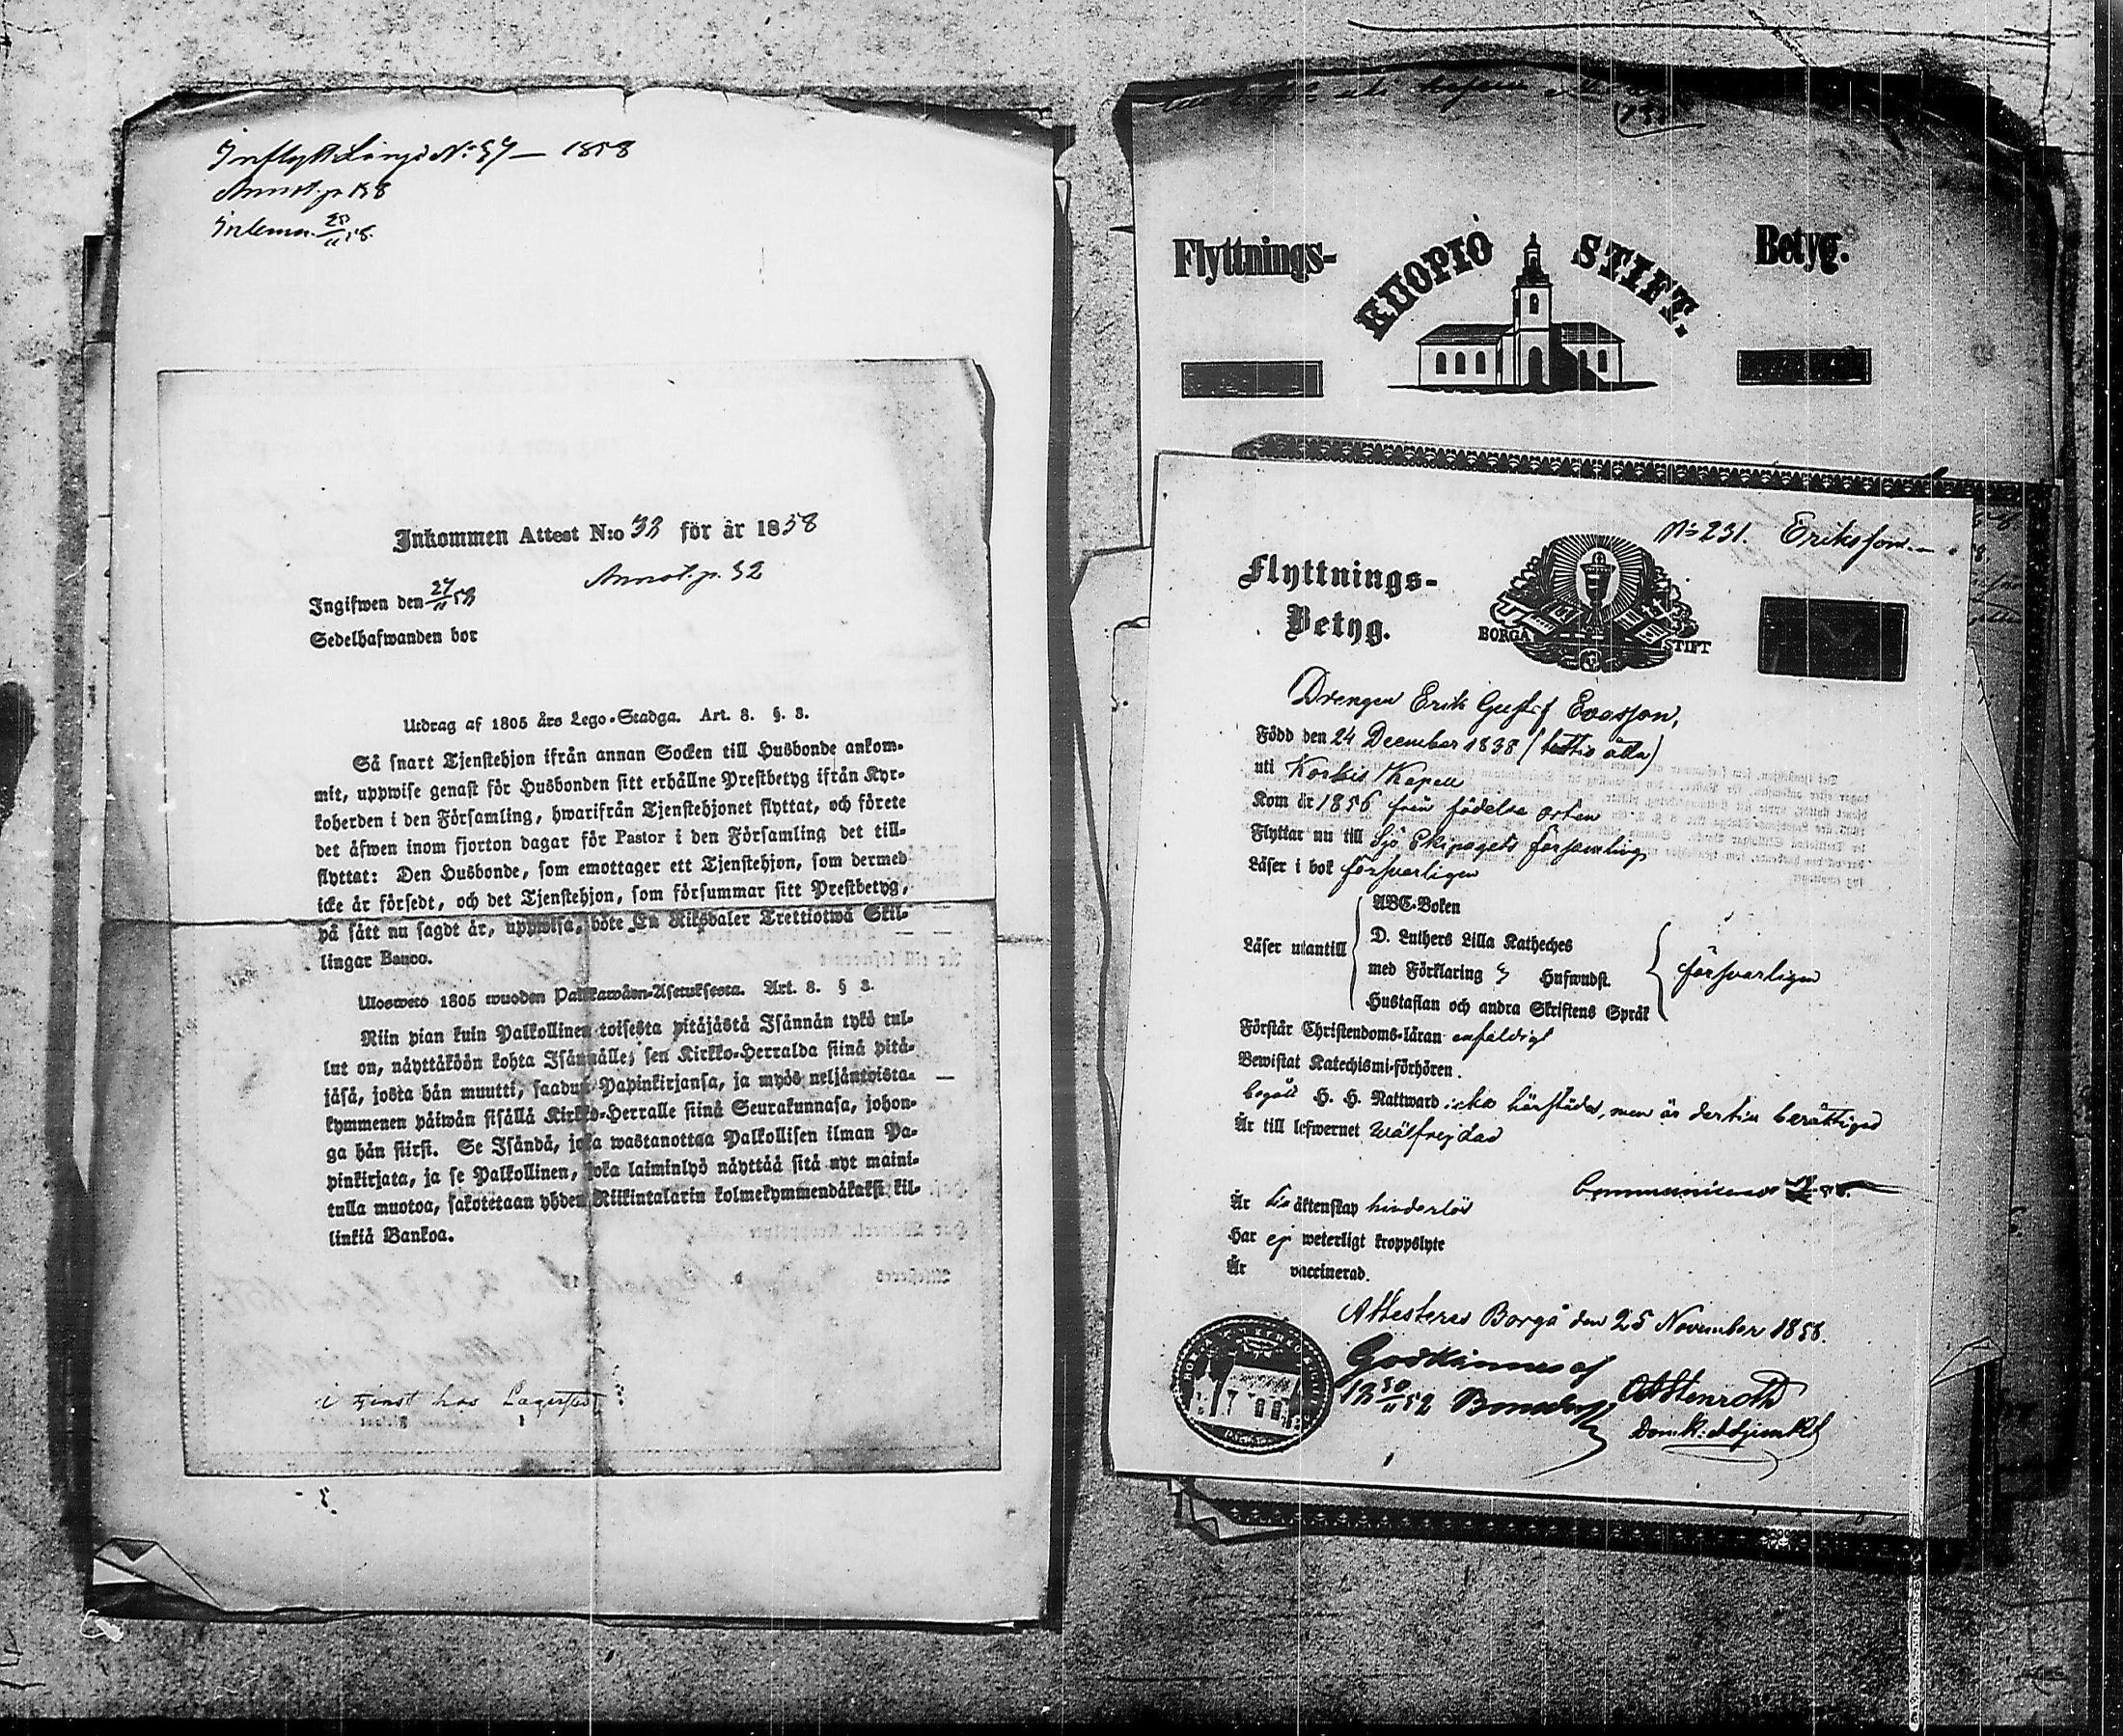 Inflyttn Längd No 57 — 1858
Annot. p. 158
Inlemn.
Inkommen Attest N:o 32 för år 1858
Annot. p. 52
Ingifwen den 27/11 58
Sedelhafwanden bor
Utdrag af 1805 års Lego-Stadga. Art. 8. §. 3.
Så snart Tjenstehjon ifrån annan Socken till Husbonde ankom-
mit, uppwise genast för Husbonden sitt erhållne Prestbetyg ifrån Kyr-
koherden i den Församling, hwarifrån Tjenstehjonet flyttat, och förete
det äfwen inom fjorton dagar för Pastor i den Församling det till-
flyttat: Den Husbonde, som emottager ett Tjenstehjon, som dermed
icke är försedt, och det Tjenstehjon, som försummar sitt Prestbetyg,
på sätt nu sagdt är, uppwisa, böte En Riksdaler Trettiotwå Skil-
lingar Banco.
Ulosweto 1805 wuoden Palkkawäen-Asetuksesta. Art. 8. § 3.
Niin pian kuin Palkollinen toisesta pitäjästä Isännän tykö tul-
lut on, näyttäköön kohta Isännälle, sen Kirkko-Herralda siinä pitä-
jäsä, josta hän muutti, saadun Papinkirjansa, ja myös neljäntoista-
kymmenen päiwän sisällä Kirkko-Herralle siinä Seurakunnasa, johon-
ga hän siirsi. Se Isändä, joka wastanottaa Palkollisen ilman Pa-
pinkirjata, ja se Palkollinen, joka laiminlyö näyttää sitä nyt maini-
tulla muotoa, sakotetaan yhden Riikintalarin kolmekymmendäkaksi kil-
linkiä Bankoa.
i tjenst hos Lagerstedt
Flyttnings-
KUOPIO STIFT.
Betyg.
No 231. Eriksson
Flyttnings-
Betyg.
BORGÅ STIFT
Drengen Erik Gustaf Evasson,
Född den 24 December 1838 (trettio åtta)
uti Korkis Kapell
Kom år 1856 från födelse orten
Flyttar nu till Sjö Ekipagets församling
Läser i bok försvarligen
ABC-Boken
Läser utantill D. Luthers Lilla Katheches försvarligen
med Förklaring 5 Hufwudst.
Hustaflan och andra Skriftens Språk
Förstår Christendoms-läran enfaldigt
Bewistat Katechismi-förhören.
begått H. H. Nattward icke härstädes, men är dertill berättigad
Är till lefwernet wälfrejdad
Communicerat
Är till äktenskap hinderlös
Har ej weterligt kroppslyte
Är vaccinerad.
Attesteras Borgå den 25 November 1858.
Godkännes af